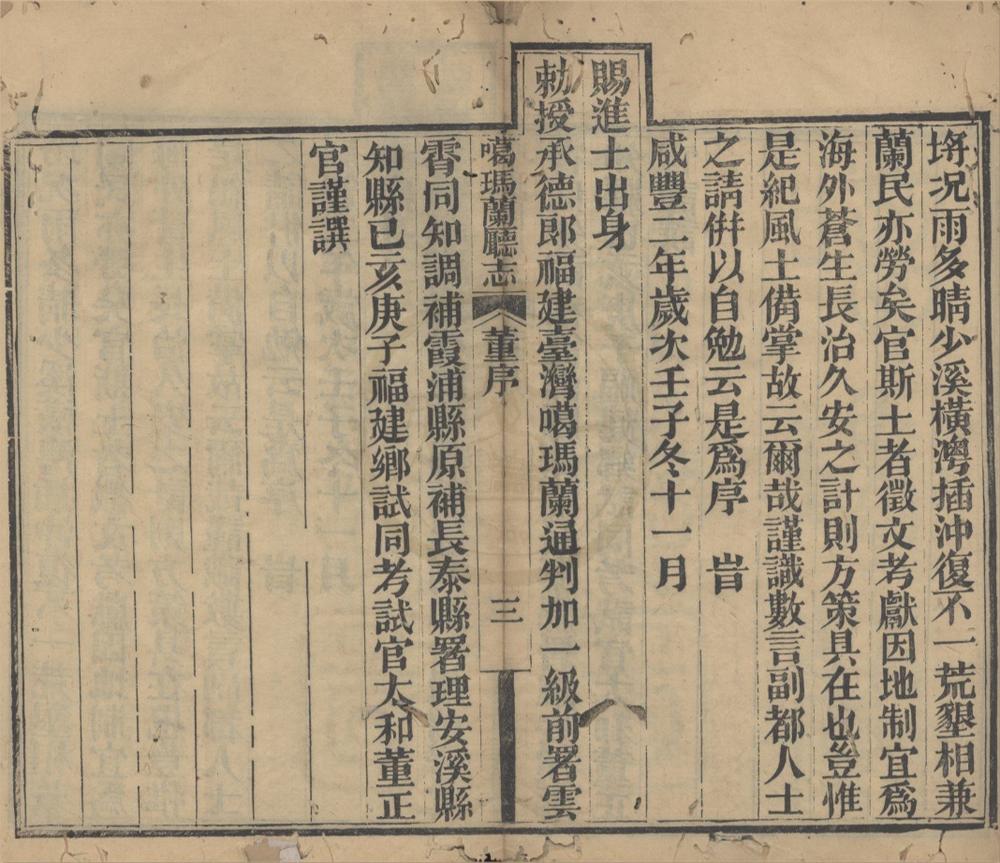 坍况雨多晴少溪橫灣插沖復不一荒墾相兼
蘭民亦勞矣官斯土者徵文考獻因地制宜爲
海外蒼生長治久安之計則方策具在也豈惟
是紀風土備掌故云爾哉謹識數言副都人士
之請併以自勉云是爲序 旹
咸豐二年歲次壬子冬十一月
賜進士出身
勅授承德郎福建臺灣噶瑪蘭通判加一級前署雲
噶瑪蘭廳志 董序 三
霄同知調補霞浦縣原補長泰縣署理安溪縣
知縣己亥庚子福建鄉試同考試官太和董正
官謹譔